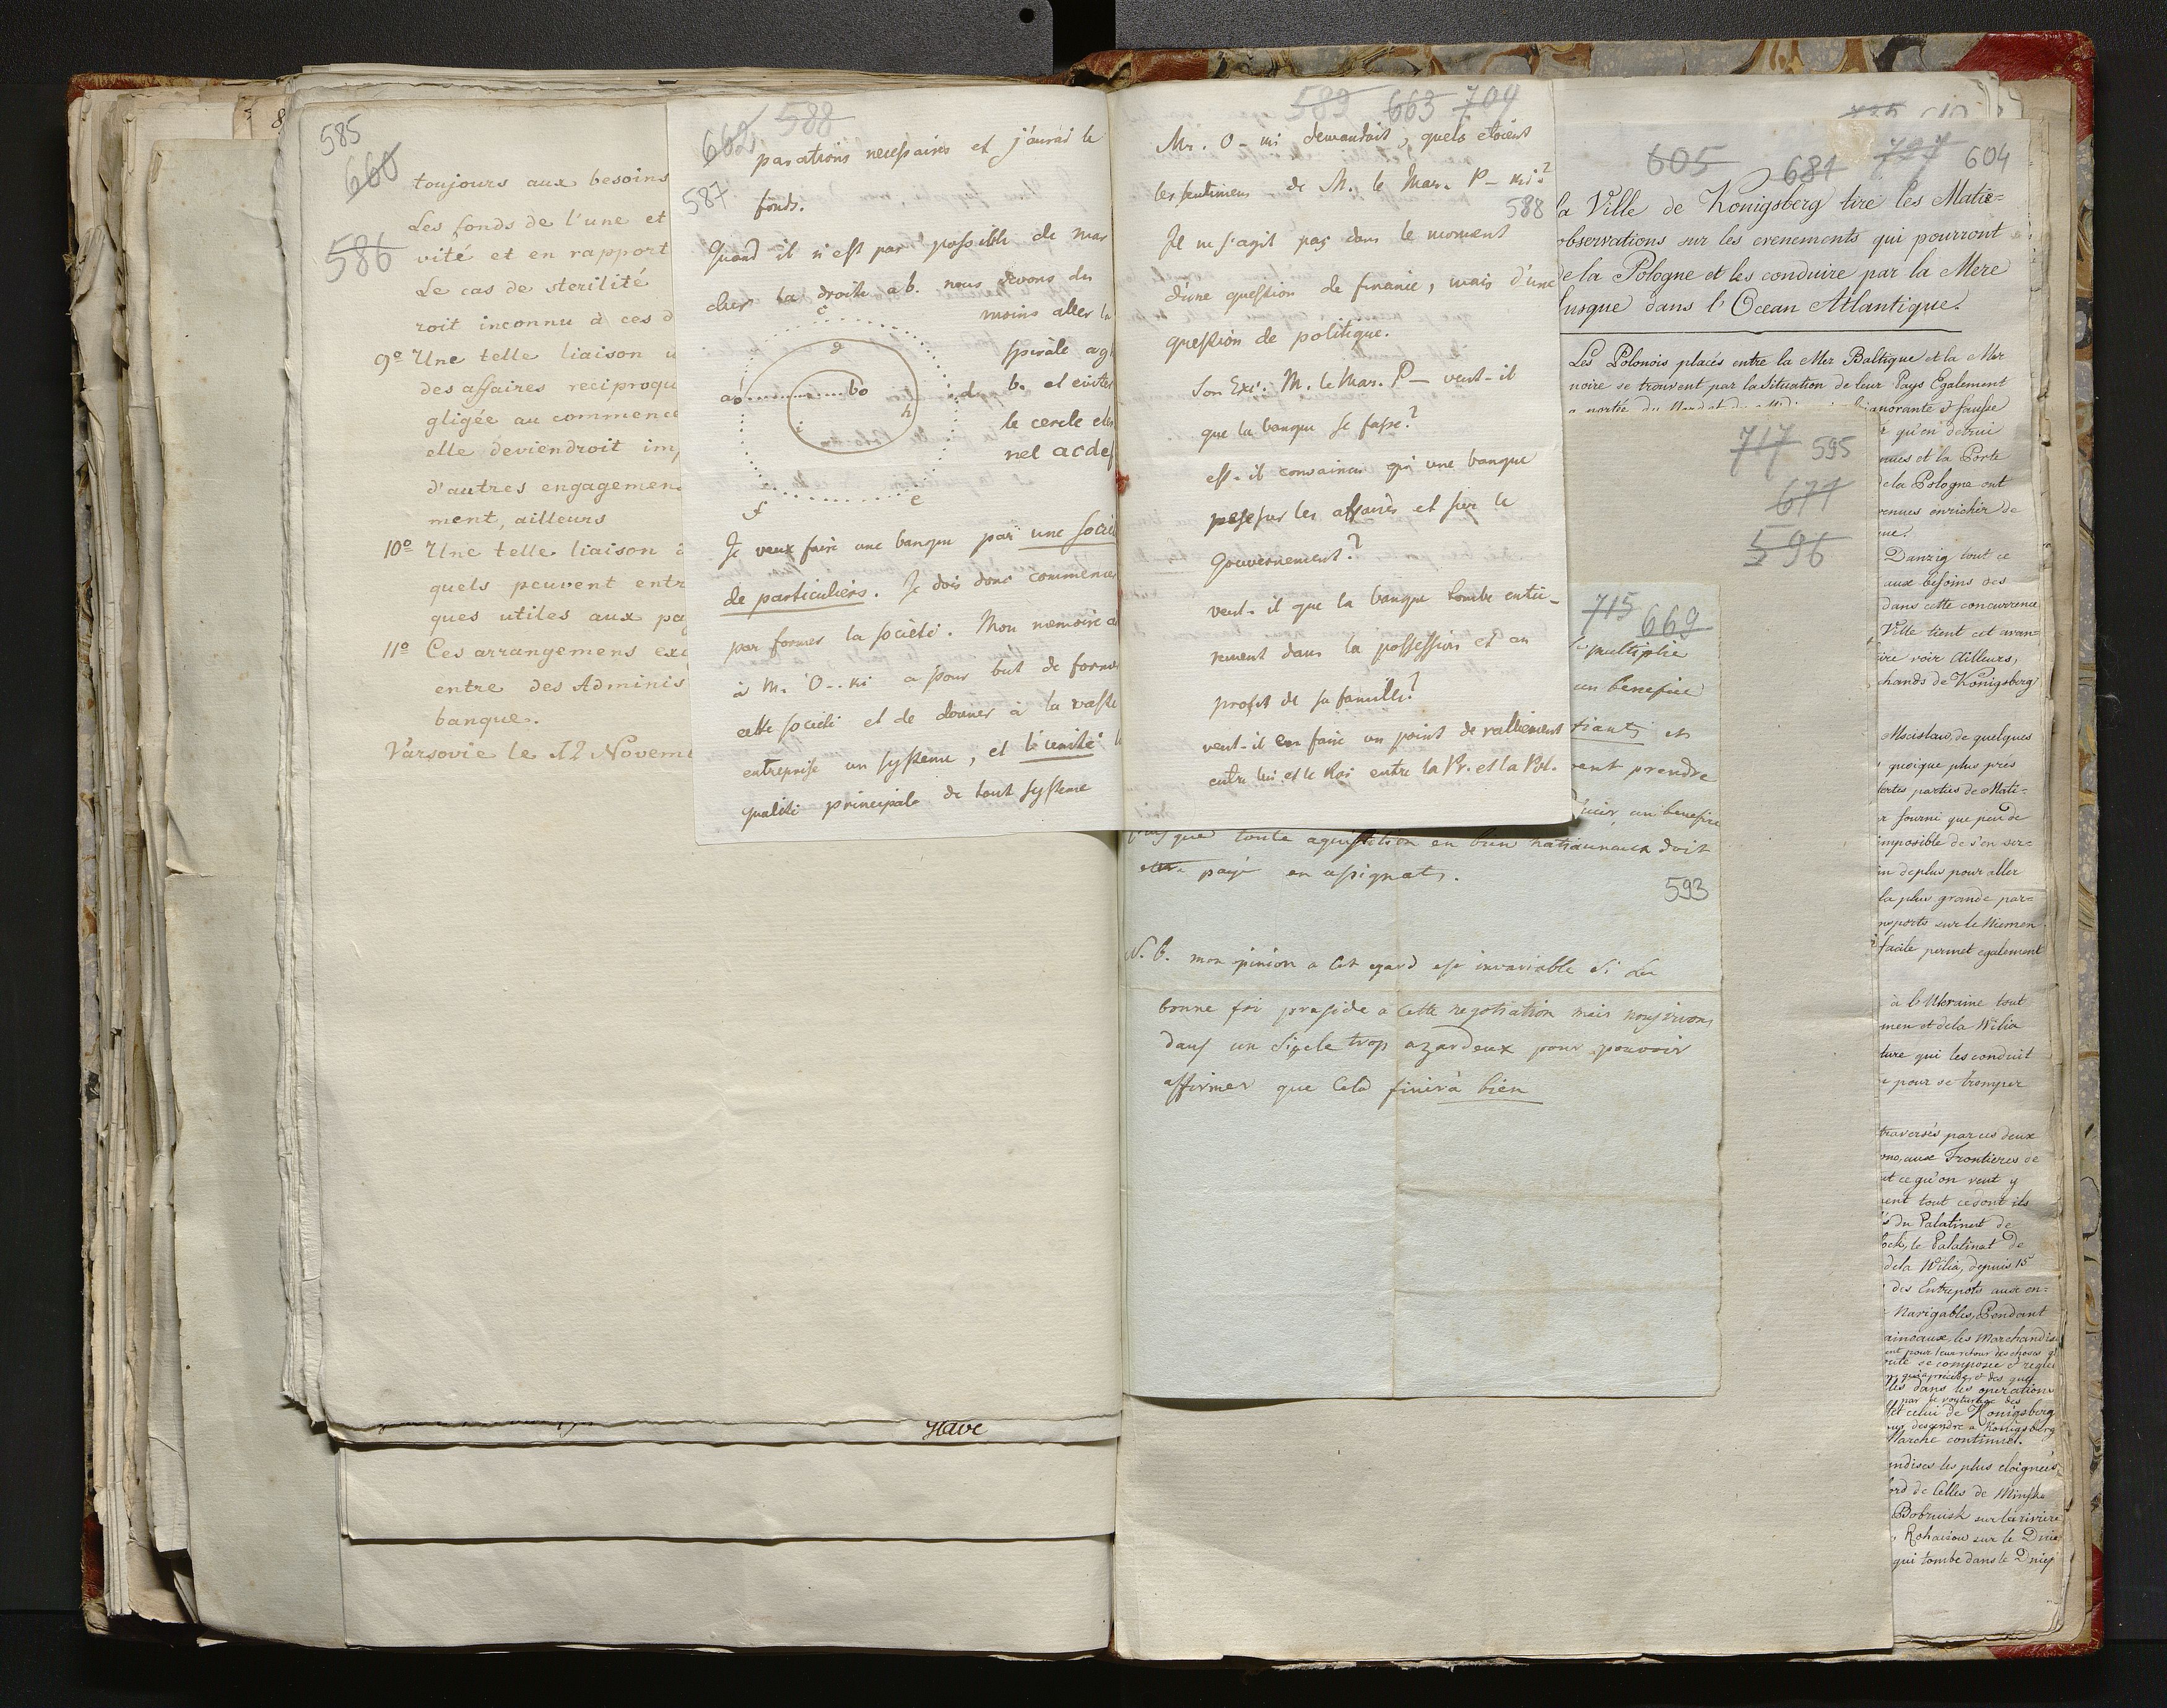 585
660
586
toujours aux besoins
Les fonds de l'une et
vité et en rapport
Le cas de sterilité
roit inconnu à ces d
9º Une telle liaison u
des affaires reciproqu
gligée au commence
elle deviendroit imp
d'autres engagemen
ment, ailleurs
10º Une telle liaison
quels peuvent entr
ques utiles aux pa
11º Ces arrangemens exi
entre des Adminis
banque.
Varsovie le 12 Novem
662 588
587
parations necessaires et j'aurai le
fonds.
Quand il n'est pas possible de mar
cher la droite ab. nous devons du
moins aller la
spirale ag
b. et eviter
le cercle eter
nel acdef
c
g
a b d
h
i
f e
Je veux faire une banque par une socié
de particuliers. Je dois donc commencer
par former la société. Mon memoire
à M. O-..ki a pour but de former
cette société et de donner à la vaste
entreprise un systeme, et l'unité
qualité principale de tout systeme
589 663 704
588
Mr. O-ki demandoit, quels etoient
les sentimens de M. le Mar. P-ki?
Il ne s'agit pas dans le moment
d'une question de finance, mais d'une
question de politique.
Son Exc. M. le Mar. P- veut-il
que la banque se fasse?
est-il convaincu qu'une banque
pese sur les affaires et sur le
Gouvernement?
veut-il que la banque tombe entie-
rement dans la possession et au
profit de sa famille?
veut-il en faire un point de ralliement
entre lui et le Roi entre la Pr. et la Pol.
715 669
multiplie
un benefice
et
vent prendre
un benefice
que toute aquisition en bien nationnaux doit
payé en assignats.
593
N.B. mon opinion a cet egard est invariable si la
bonne foi preside a cette negotiation mais nous vivons
dans un siecle trop azardeux pour pouvoir
affirmer que cela finira bien
717 595
677
596
605 681 727 604
la Ville de Konigsberg tire les Matie=
observations sur les evenements qui pourront
de la Pologne et les conduire par la Mere
jusque dans l'Ocean Atlantique.
Les Polonois placés entre la Mer Baltique et la Mer
noire se trouvent par la Situation de leur Pays Egalement
ignorante & fausse
qu'en detrui
nues et la Porte
de la Pologne ont
venues enrichir de
que.
Danzig tout ce
aux besoins des
dans cette concurrence
Ville tient cet avan=
ire voir Ailleurs,
chands de Königsberg
Mscislaw, de quelques
quoique plus près
fertes parties de Mati=
r fourni que peu de
imposible de s'en ser=
in deplus pour aller
la plus grande par=
nsports sur le Niemen
facile permet egalement
à l'Ukraine tout
men et dela Wilia
ture qui les conduit
e pour se tromper
traversés par ces deux
aux Frontieres de
et ce qu'on veut y
ent tout ce dont ils
du Palatinat de
le Palatinat de
dela Wilia, depuis 15
des Entrepots aux en=
Navigables, Pendant
aineaux, les Marchandis
ent pour leur retour des choses q
se composée & reglée
les dans les operations
par le voyturage des
et celui de Konigsberg
descendre a Konigsberg
Marche continuel.
ndises les plus eloignées
ord de Celles de Minsk
Bobruisk sur la riviere
Rohaczow sur le Dnie
qui tombe dans le Dniep